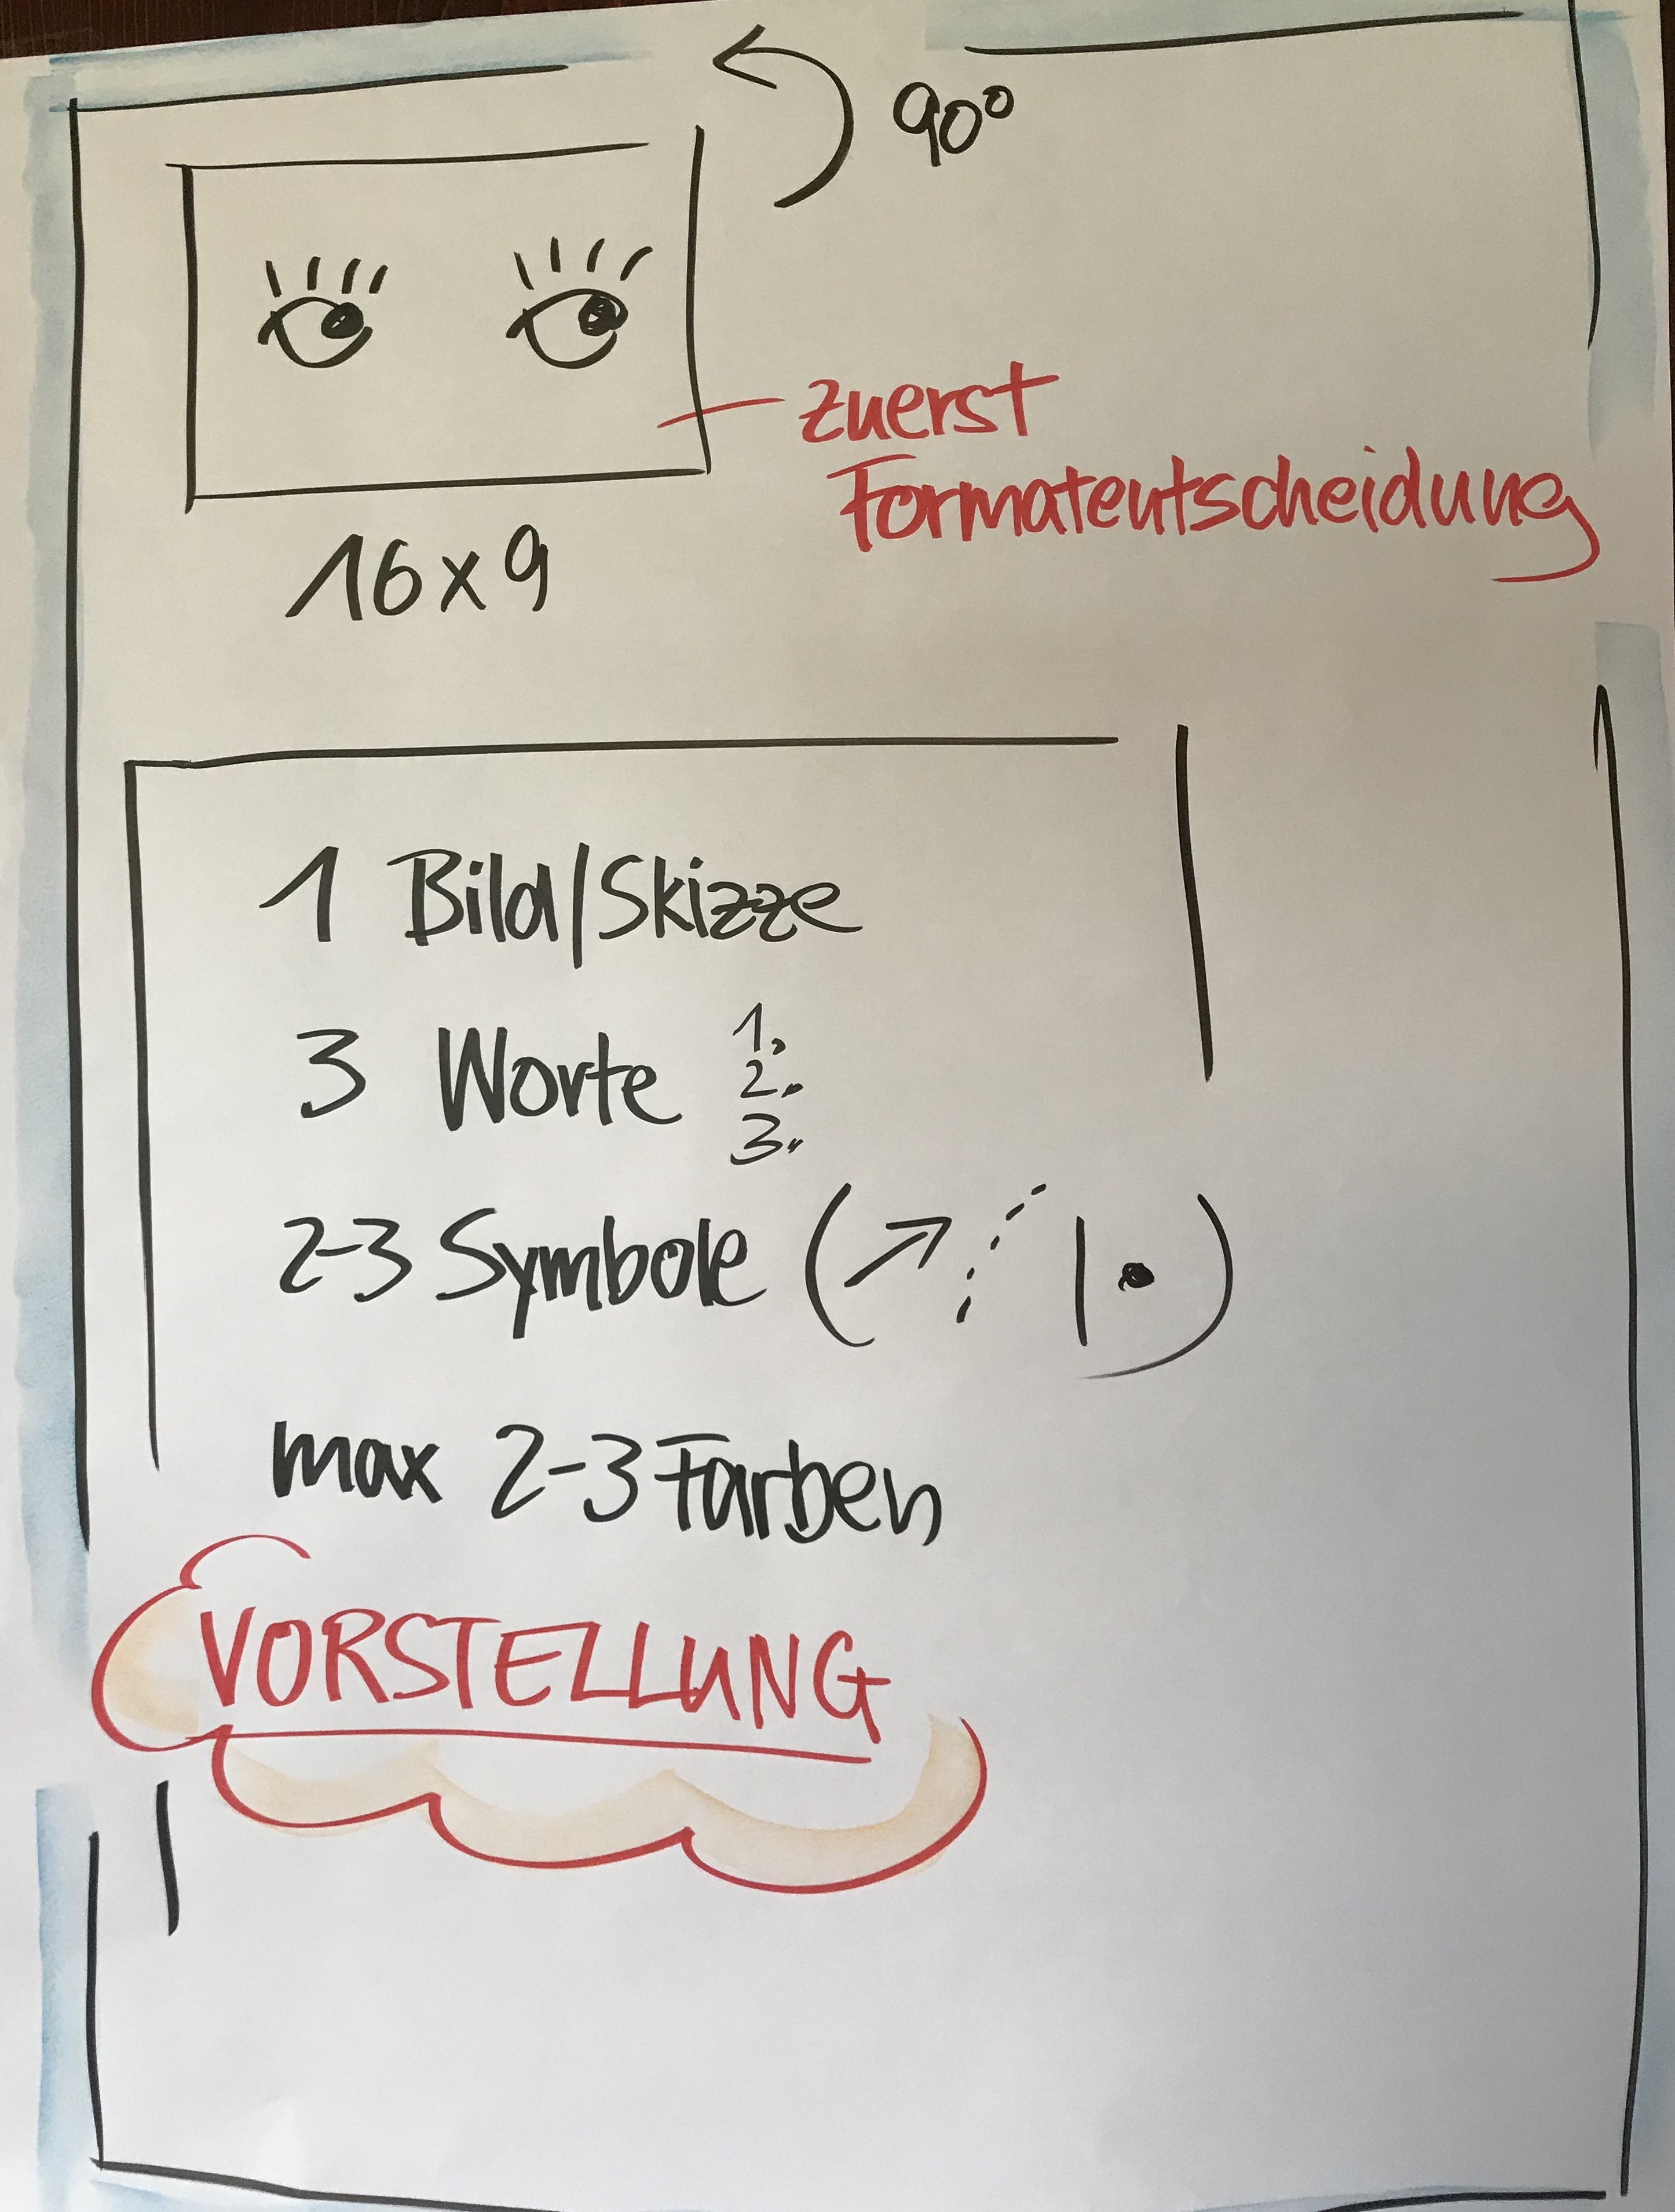 90°
zuerst
Formatentscheidung
16x9
1 Bild/Skizze
3 Worte 1.
2.
3.
2-3 Symbole (↗ |•)
max 2-3 Farben
VORSTELLUNG